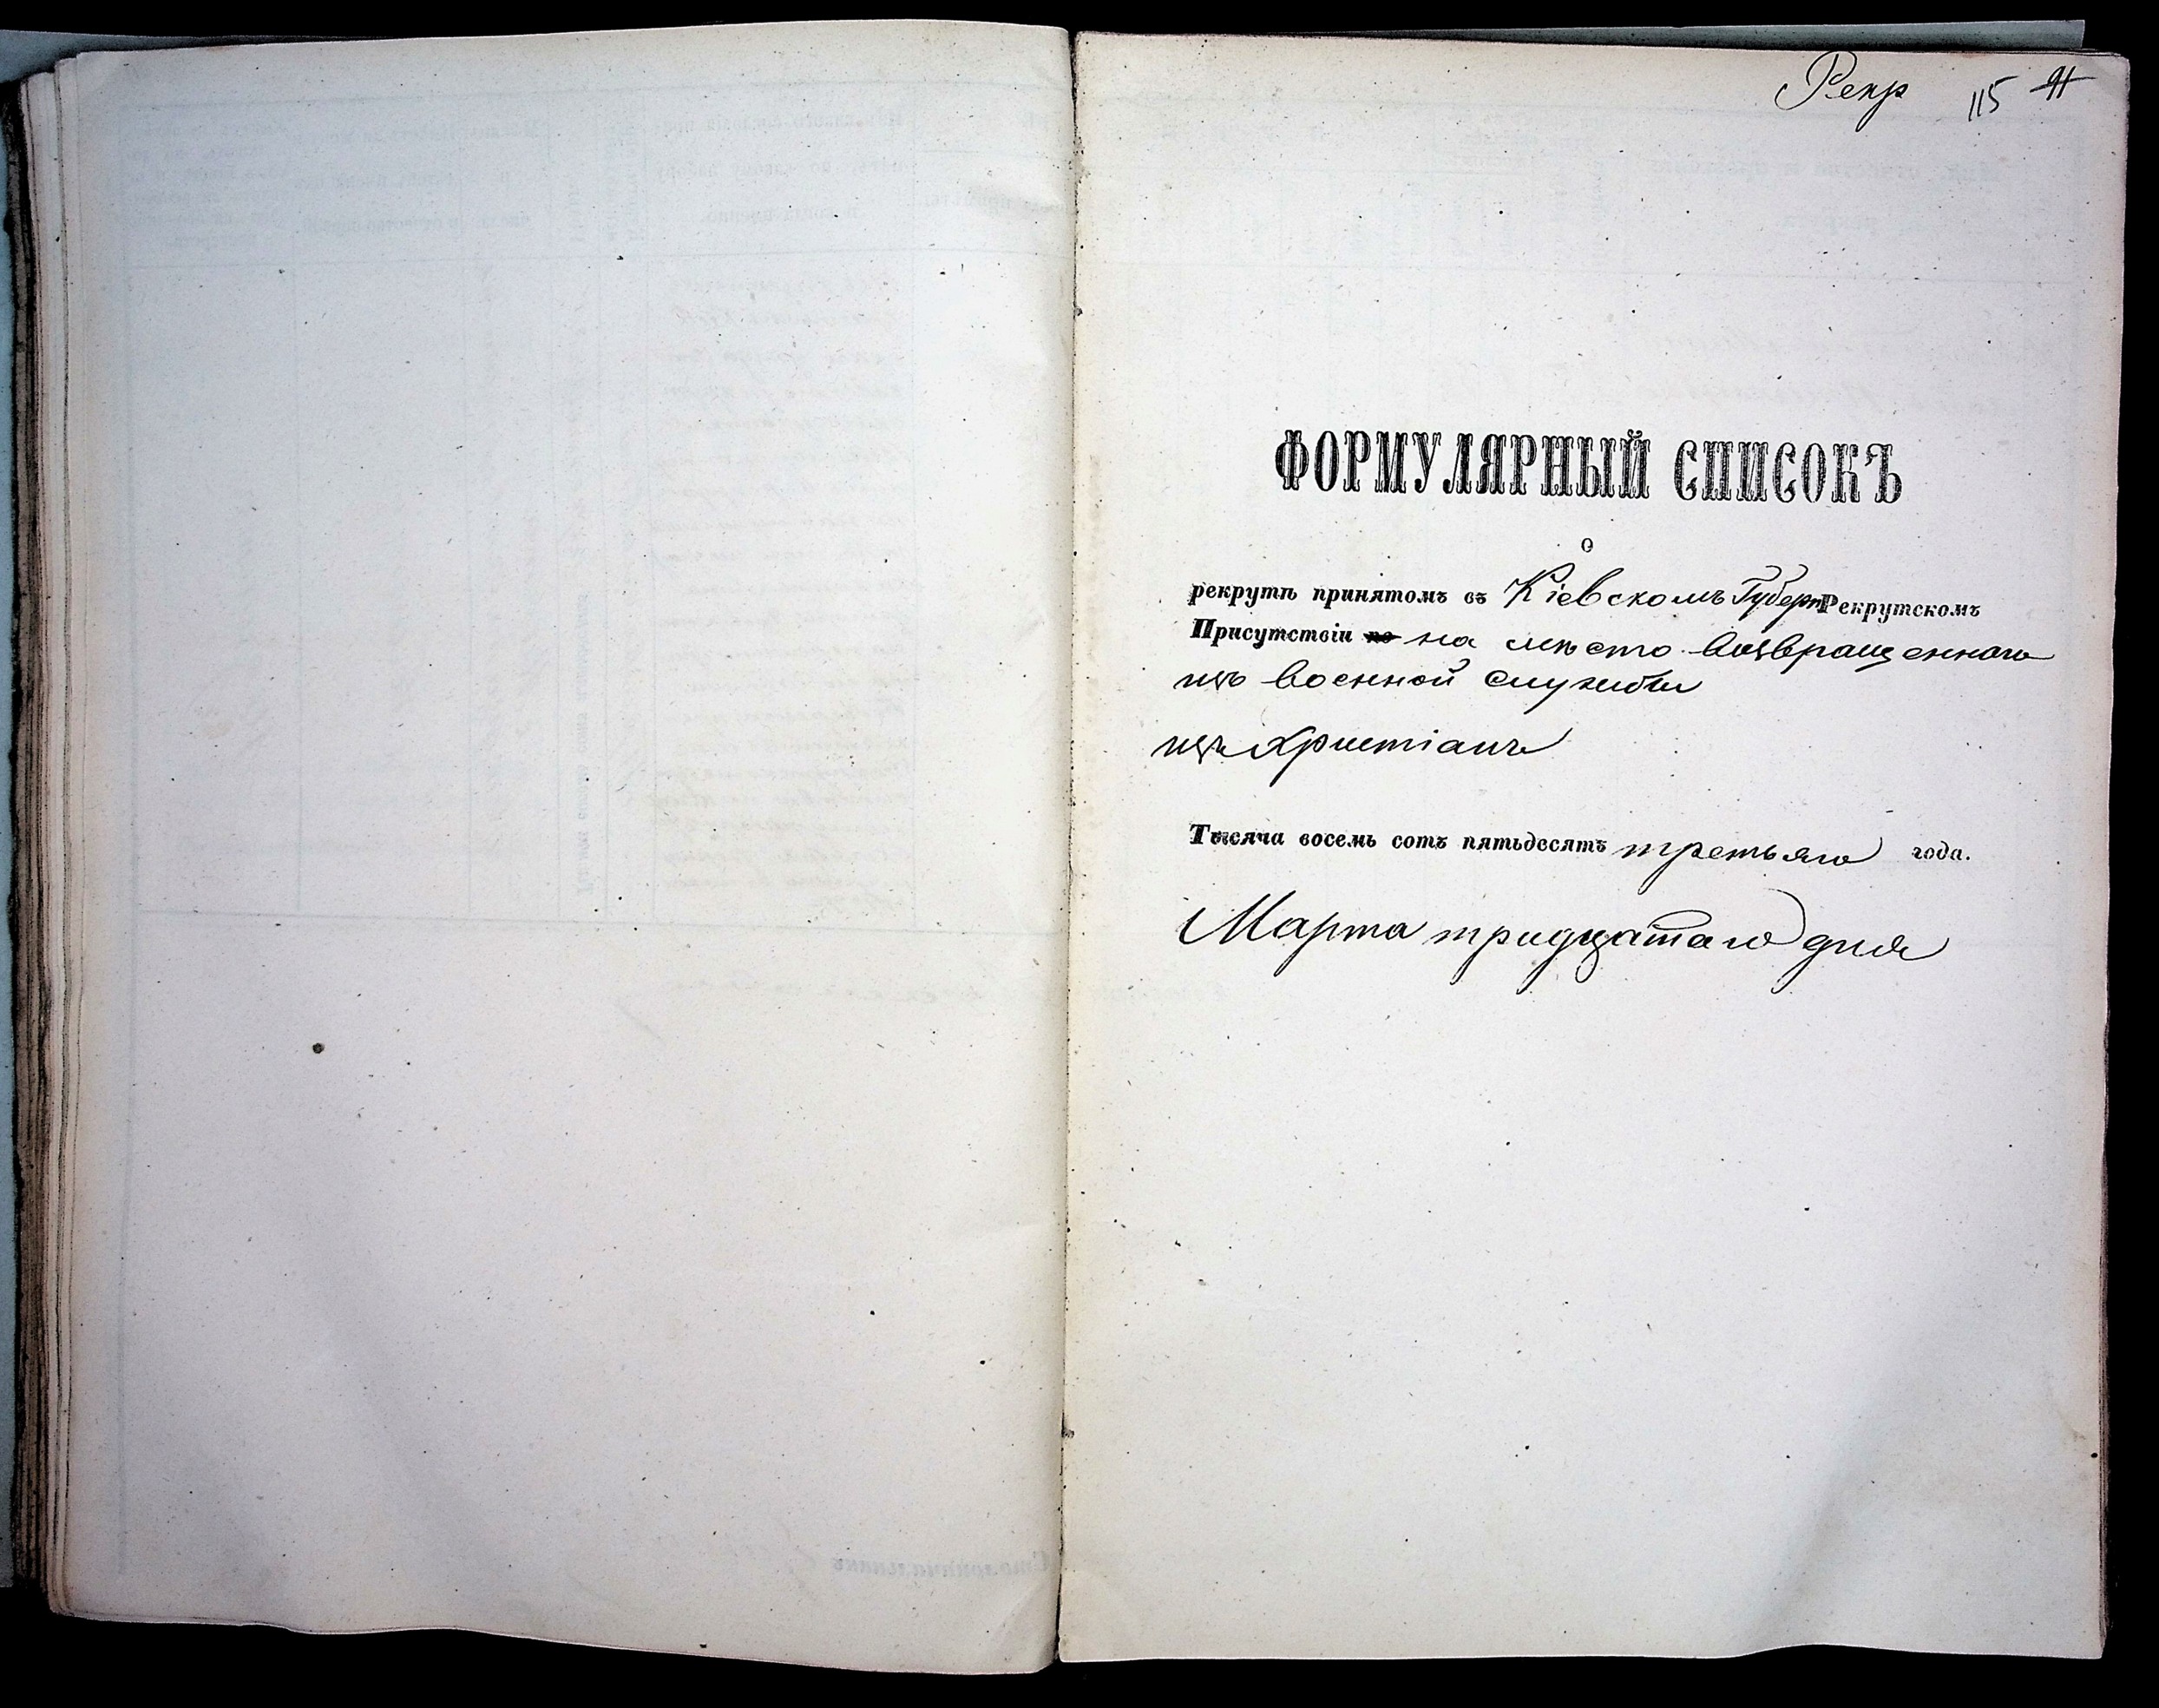 Рекр 115 91
ФОРМУЛЯРНЫЙ СПИСОКЪ
о
рекрутѣ принятомъ въ Кіевскомъ Губерн Рекрутскомъ
Присутствіи по на мѣсто возвращеннаго
изъ военной службы
изъ Христіанъ
Тысяча восемь сотъ пятьдесятъ третьяго года.
Марта тридцатаго дня